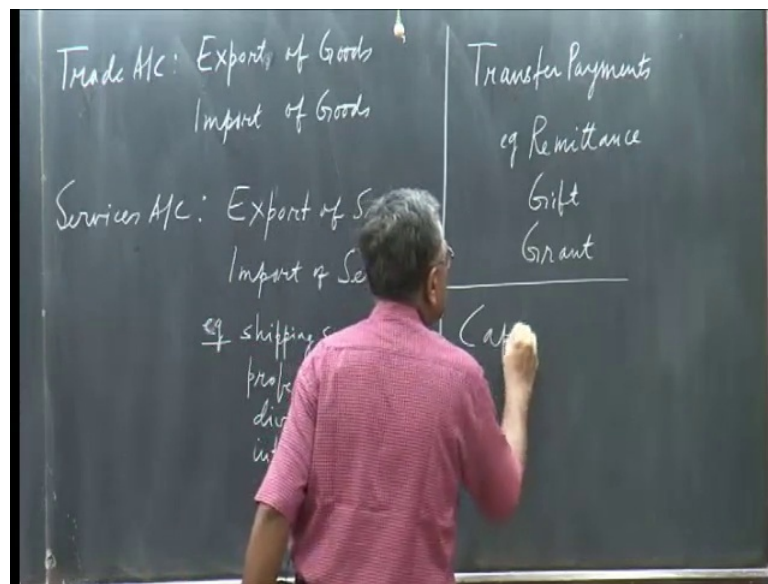 Trade A/C: Export of Goods
Import of Goods
Services A/C: Export of S
Import of Se
eg shipping
prof
div
int
Transfer Payments
eg Remittance
Gift
Grant
Cap